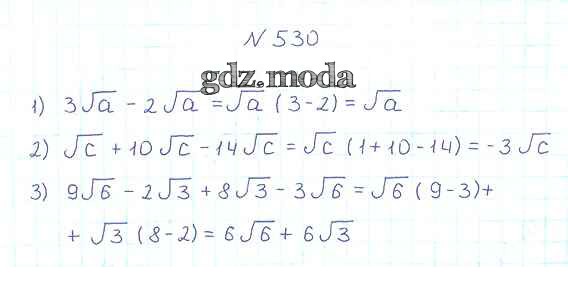 N 530
gdz.moda
1) 3√a - 2√a = √a (3-2) = √a
2) √c + 10√c - 14√c = √c (1+10-14) = -3√c
3) 9√6 - 2√3 + 8√3 - 3√6 = √6 (9-3)+
+ √3 (8-2) = 6√6 + 6√3